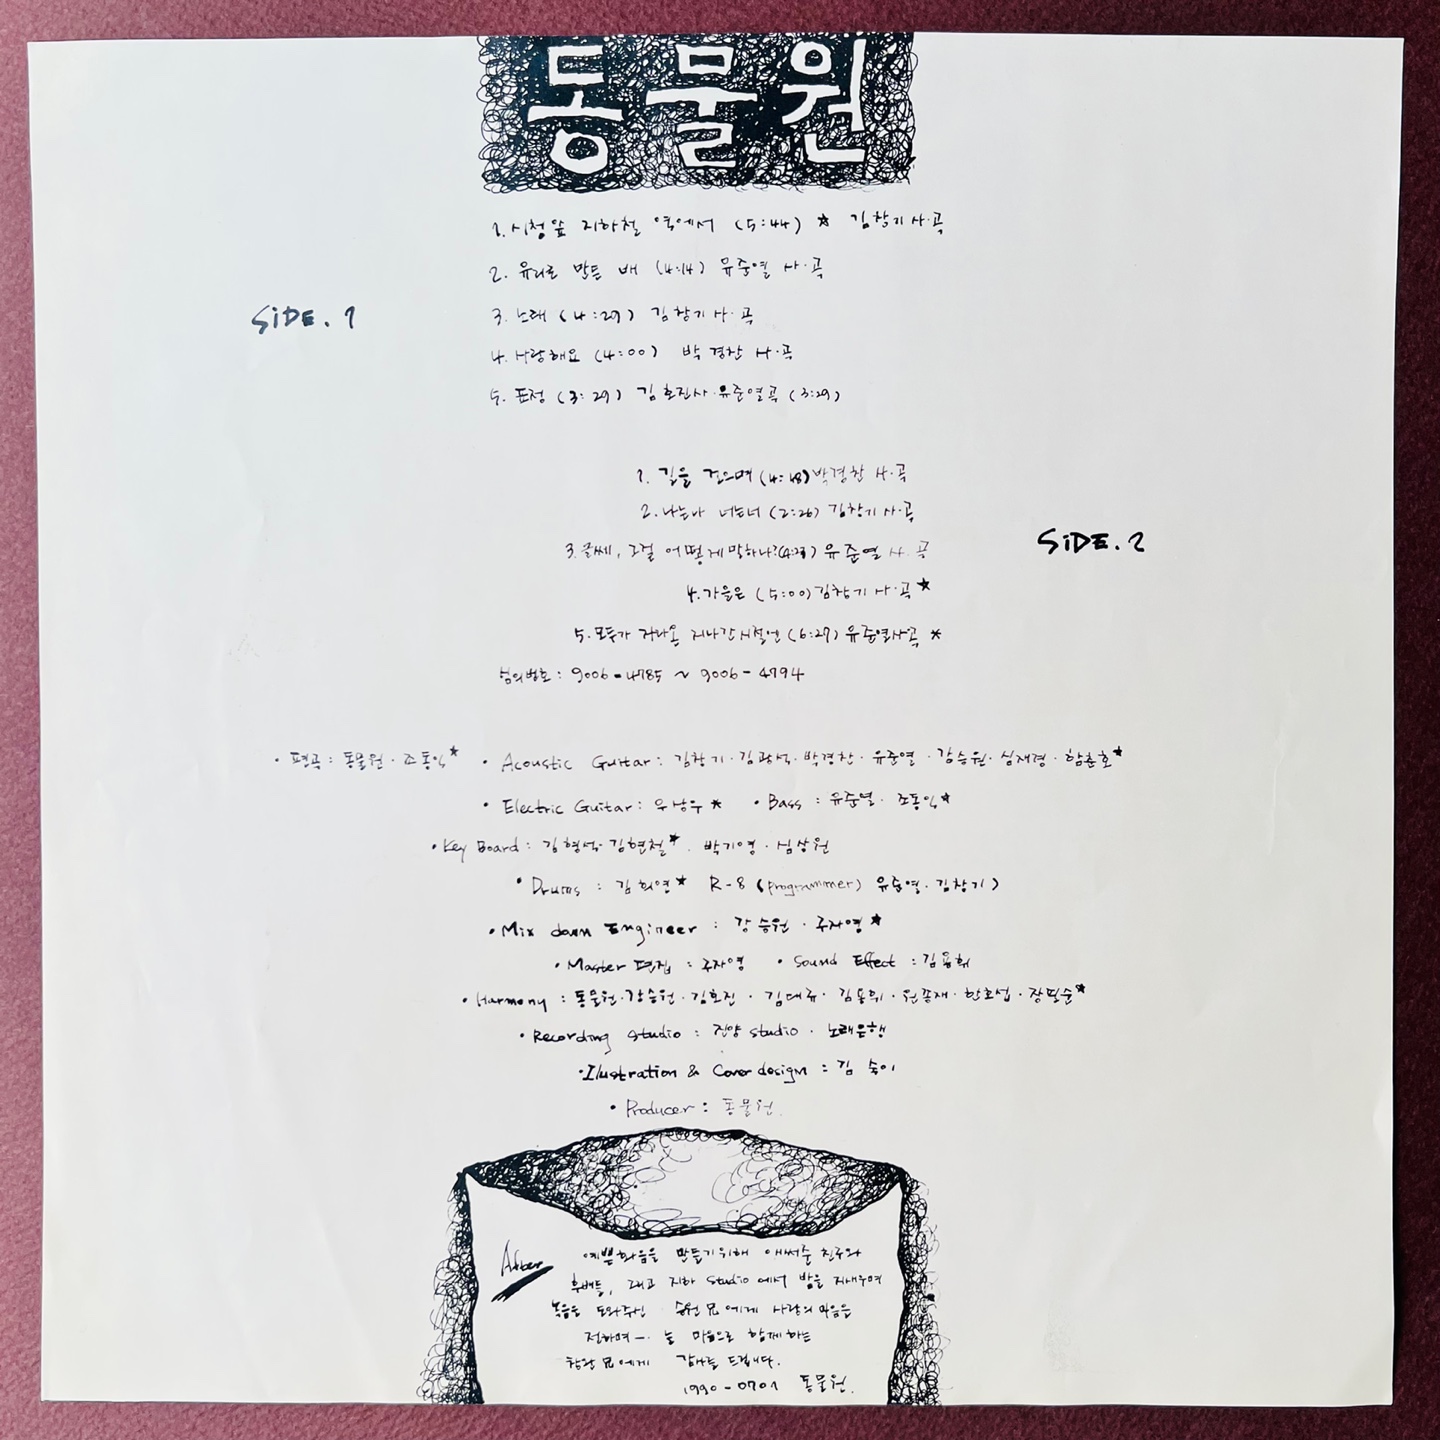 동물원
1. 시청앞 지하철 역에서 (5:44) ★ 김창기 사·곡
2. 유리로 만든 배 (4:14) 유준열 사·곡
SiDE. 1
3. 노래 (4:29) 김창기 사·곡
4. 사랑해요 (4:00) 박경찬 사·곡
5. 표정 (3:29) 김호진사·유준열곡 (3:29)
1. 길을 걸으며 (4:48) 박경찬 사·곡
2. 나는나 너는너 (2:26) 김창기 사·곡
SiDE. 2
3. 글쎄, 그걸 어떻게 말하나? 유준열 사·곡
4. 가을은 (5:00) 김창기 사·곡★
5. 모두가 지나온 지나간시절엔 (6:27) 유준열사·곡 ★
심의번호 : 9006-4785 ~ 9006-4794
· 편곡 : 동물원 · 조동익★ · Acoustic Guitar : 김창기 · 김광석 · 박경찬 · 유준열 · 강승원 · 심재경 · 함춘호★
· Electric Guitar : ★ · Bass : 유준열 · 조동익★
· Key Board : 김형석 · 김현철★ · 박기영 · 심상원
· Drums : 김희연★ R-8 (programmer) 유준열 · 김창기)
· Mix down Engineer : 강승원 · 주자영★
· Master 편집 : 주자영 · Sound Effect : 김용휘
· Harmony : 동물원 · 강승원 · 김호진 · 김대규 · 김용휘 · 원종재 · 한호섭 · 장필순★
· Recording studio : 진양 studio · 노래은행
· Illustration & Cover design : 김 숙이
· Producer : 동물원.
예쁜화음을 만들기위해 애써준 친구와
후배들, 그리고 지하 Studio 에서 밤을 지새우며
녹음을 도와주신 승원 兄 에게 사랑의 마음을
전하며 -. 늘 마음으로 함께 하는
창완 兄 에게 감사를 드립니다.
1990-0701 동물원.